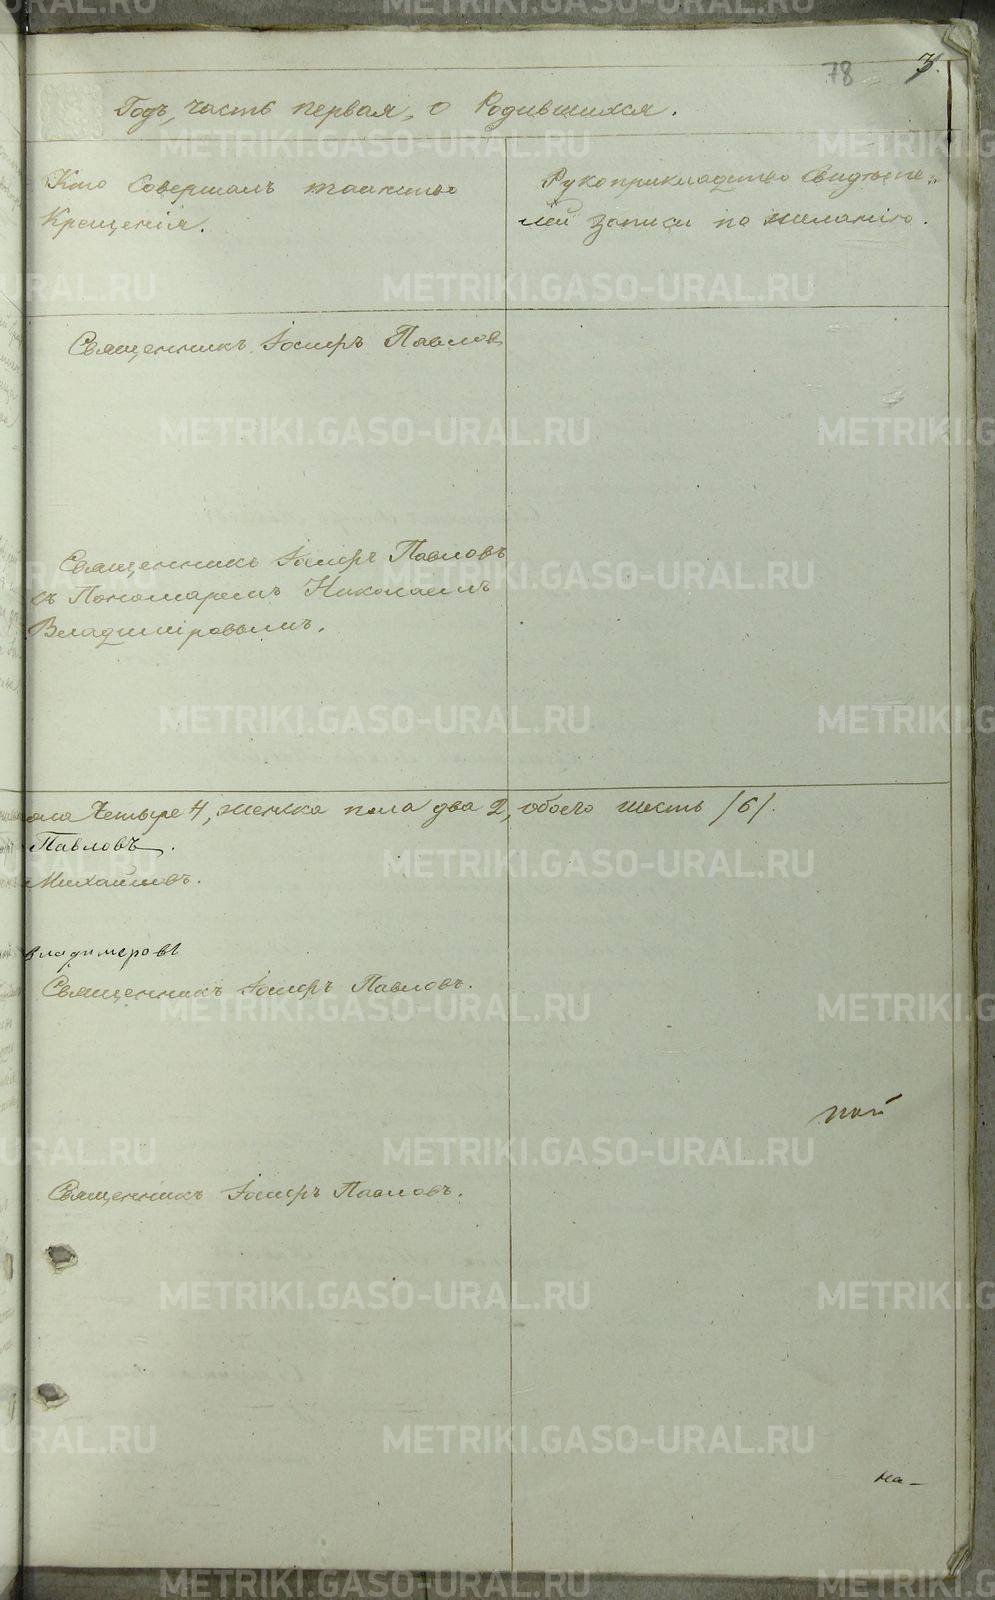 78 3.
Годъ, часть первая, о Родившихся.
Кто Совершалъ таинство
Крещенія.
Рукоприкладство Свидѣте„
лей записи по желанію.
Священникъ Іосифъ Павловъ
Священникъ Іосифъ Павловъ
съ Пономаремъ Николаемъ
Владиміровымъ.
ола Четыре 4, женска пола два 2, обоего шесть /6/.
Павловъ.
Михайловъ.
владимеровъ
Священникъ Іосифъ Павловъ.
Священникъ Іосифъ Павловъ.
на-
METRIKI.GASO-URAL.RU